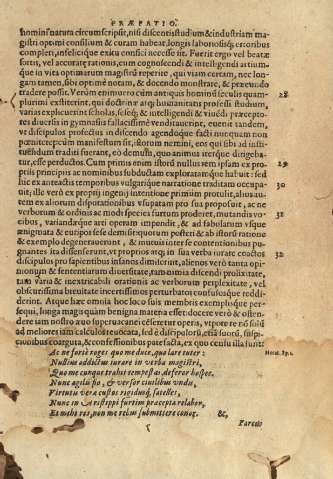 PRÆFATIO.
homini natura circumscripsit, nisi discentis studium & industriam magistri
optimi consilium & curam habeat, longis laboriosisq; erroribus
compleri, infelicique exitu consici necesse erit. Fuerit ergo vel beatæ
sortis, vel accuratę rationis, cum cognoscendi & intelligendi artium,
que in vita optimarum magistrũ reperire, qui viam certam, nec longam
tamen, sibi optimè notam, & docendo monstrare, & præeundo
tradere possit. Verùm enimuero cùm antiquis hominũ seculis quamplurimi
exstiterint, qui doctrinæ atq; humanitatis professi studium,
varias explicuerint scholas, 28
tes diuersis in gymnasiis fallacissimè venditauerint, euenit tandem,
ve discipulos profectus in discendo agendoque facti nunquam non
pœnitere manifestum sit, istorum nemini, eos qui sibi ad instituendum
traditi fuerant, quò demum, quo animus iterque dirigebatur,
esse perductos. Cum primis enim illorũ nullus rem ipsam ex propriis 29
principiis ac nominibus subductam exploratamque habuit: sed
hic ex anteactis temporibus vulgarique narratione traditam occupauit; 30
ille verò ex proprij ingenij intentione primùm protulit, alius autem
ex aliorum disputationibus vsupatam pro sua proposuit, ac ne
verborum & ordinis ac modi species furtum proderet, mutandis vocibus, 31
variandæque arti operam impendit, & ad fabulam vsque
ænigmata &
& exemplo degenerauerunt, & mutuis inter se contentionibus pugnantes
ita dissenserunt, vt proprios atq; in sua verba iurare coactos 32
discipulos pro sapientibus insanos dimiserint, alienos verò tanta opinionum
& sententiarum diuersitate, tam nimia discendi prolixitate,
tam varia & inextricabili orationis ac verborum perplexitate, vel
obscurissima breuitate incertissimos perturbatos confusosque reddiderint.
Atque hæc omnia hoc loco suis membris exemplisque persequi,
longa magis quàm benigna materia esset: docere verò & ostendere
iam nostro æuo superuacanei esset operæ, vtpote re nõ solũ
ad meliorem iam calculum reuocata, sed è discipulorũ, etiã suorũ,
& confessionibus patefacta, ex quo censu illa sunt:
Ac ne fortè roges quo me duce, quo lare tuter: Horat. Ep. 1.
Nullius addictus iurare in verba magistri,
Quo me cunque trahit tempestas, deferor hospes.
Nunc agilis fio, & versor ciuilibus vndis,
Virtutis veræ custos rigidusq; satelles,
Nunc in Aristippi furtim præcepta relabor,
Et mihi res, non me rebus submittere conor. &c.